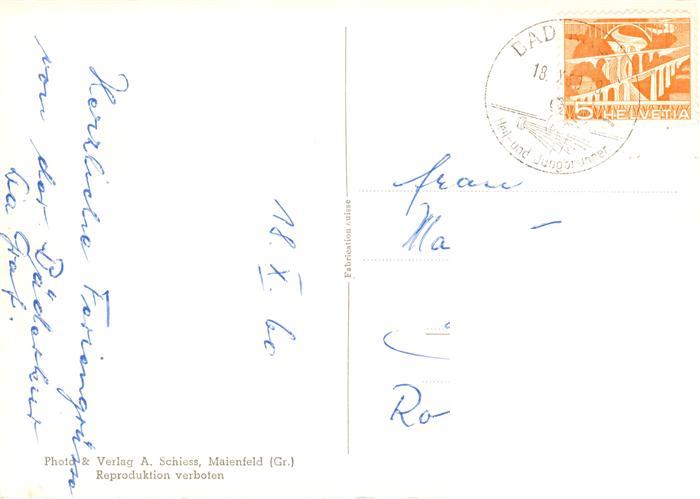 Herzliche Feriengrüsse
von der Bäderkur
18. X. 60
Photo & Verlag A. Schiess, Maienfeld (Gr.)
Reproduktion verboten
Fabrication suisse
BAD
18. X
Heil- und Jungbrunnen
5 HELVETIA
Frau
Ma
Ro